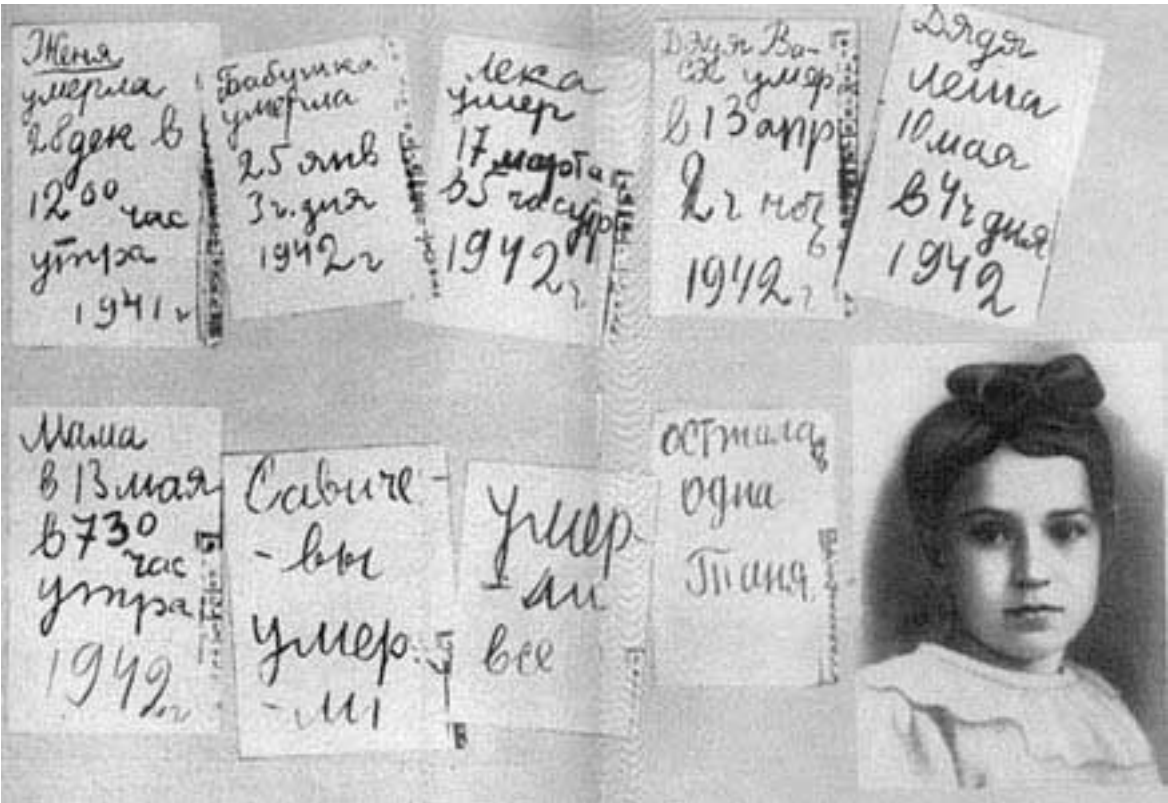 Женя
умерла
28 дек в
12 00 час
утра
1941 г
Бабушка
умерла
25 янв
3 ч. дня
1942 г
Лека
умер
17 марта
в 5 час утр
1942 г
Дядя Ва-
ся умер
в 13 апр
2 ч ноч
ь
1942 г
Дядя
Леша
10 мая
в 4 ч дня
1942
Мама
в 13 мая
в 7 30
час
утра
1942 г
Савиче-
- вы
умер.
- ли
Умер-
- ли
все
осталась
одна
Таня